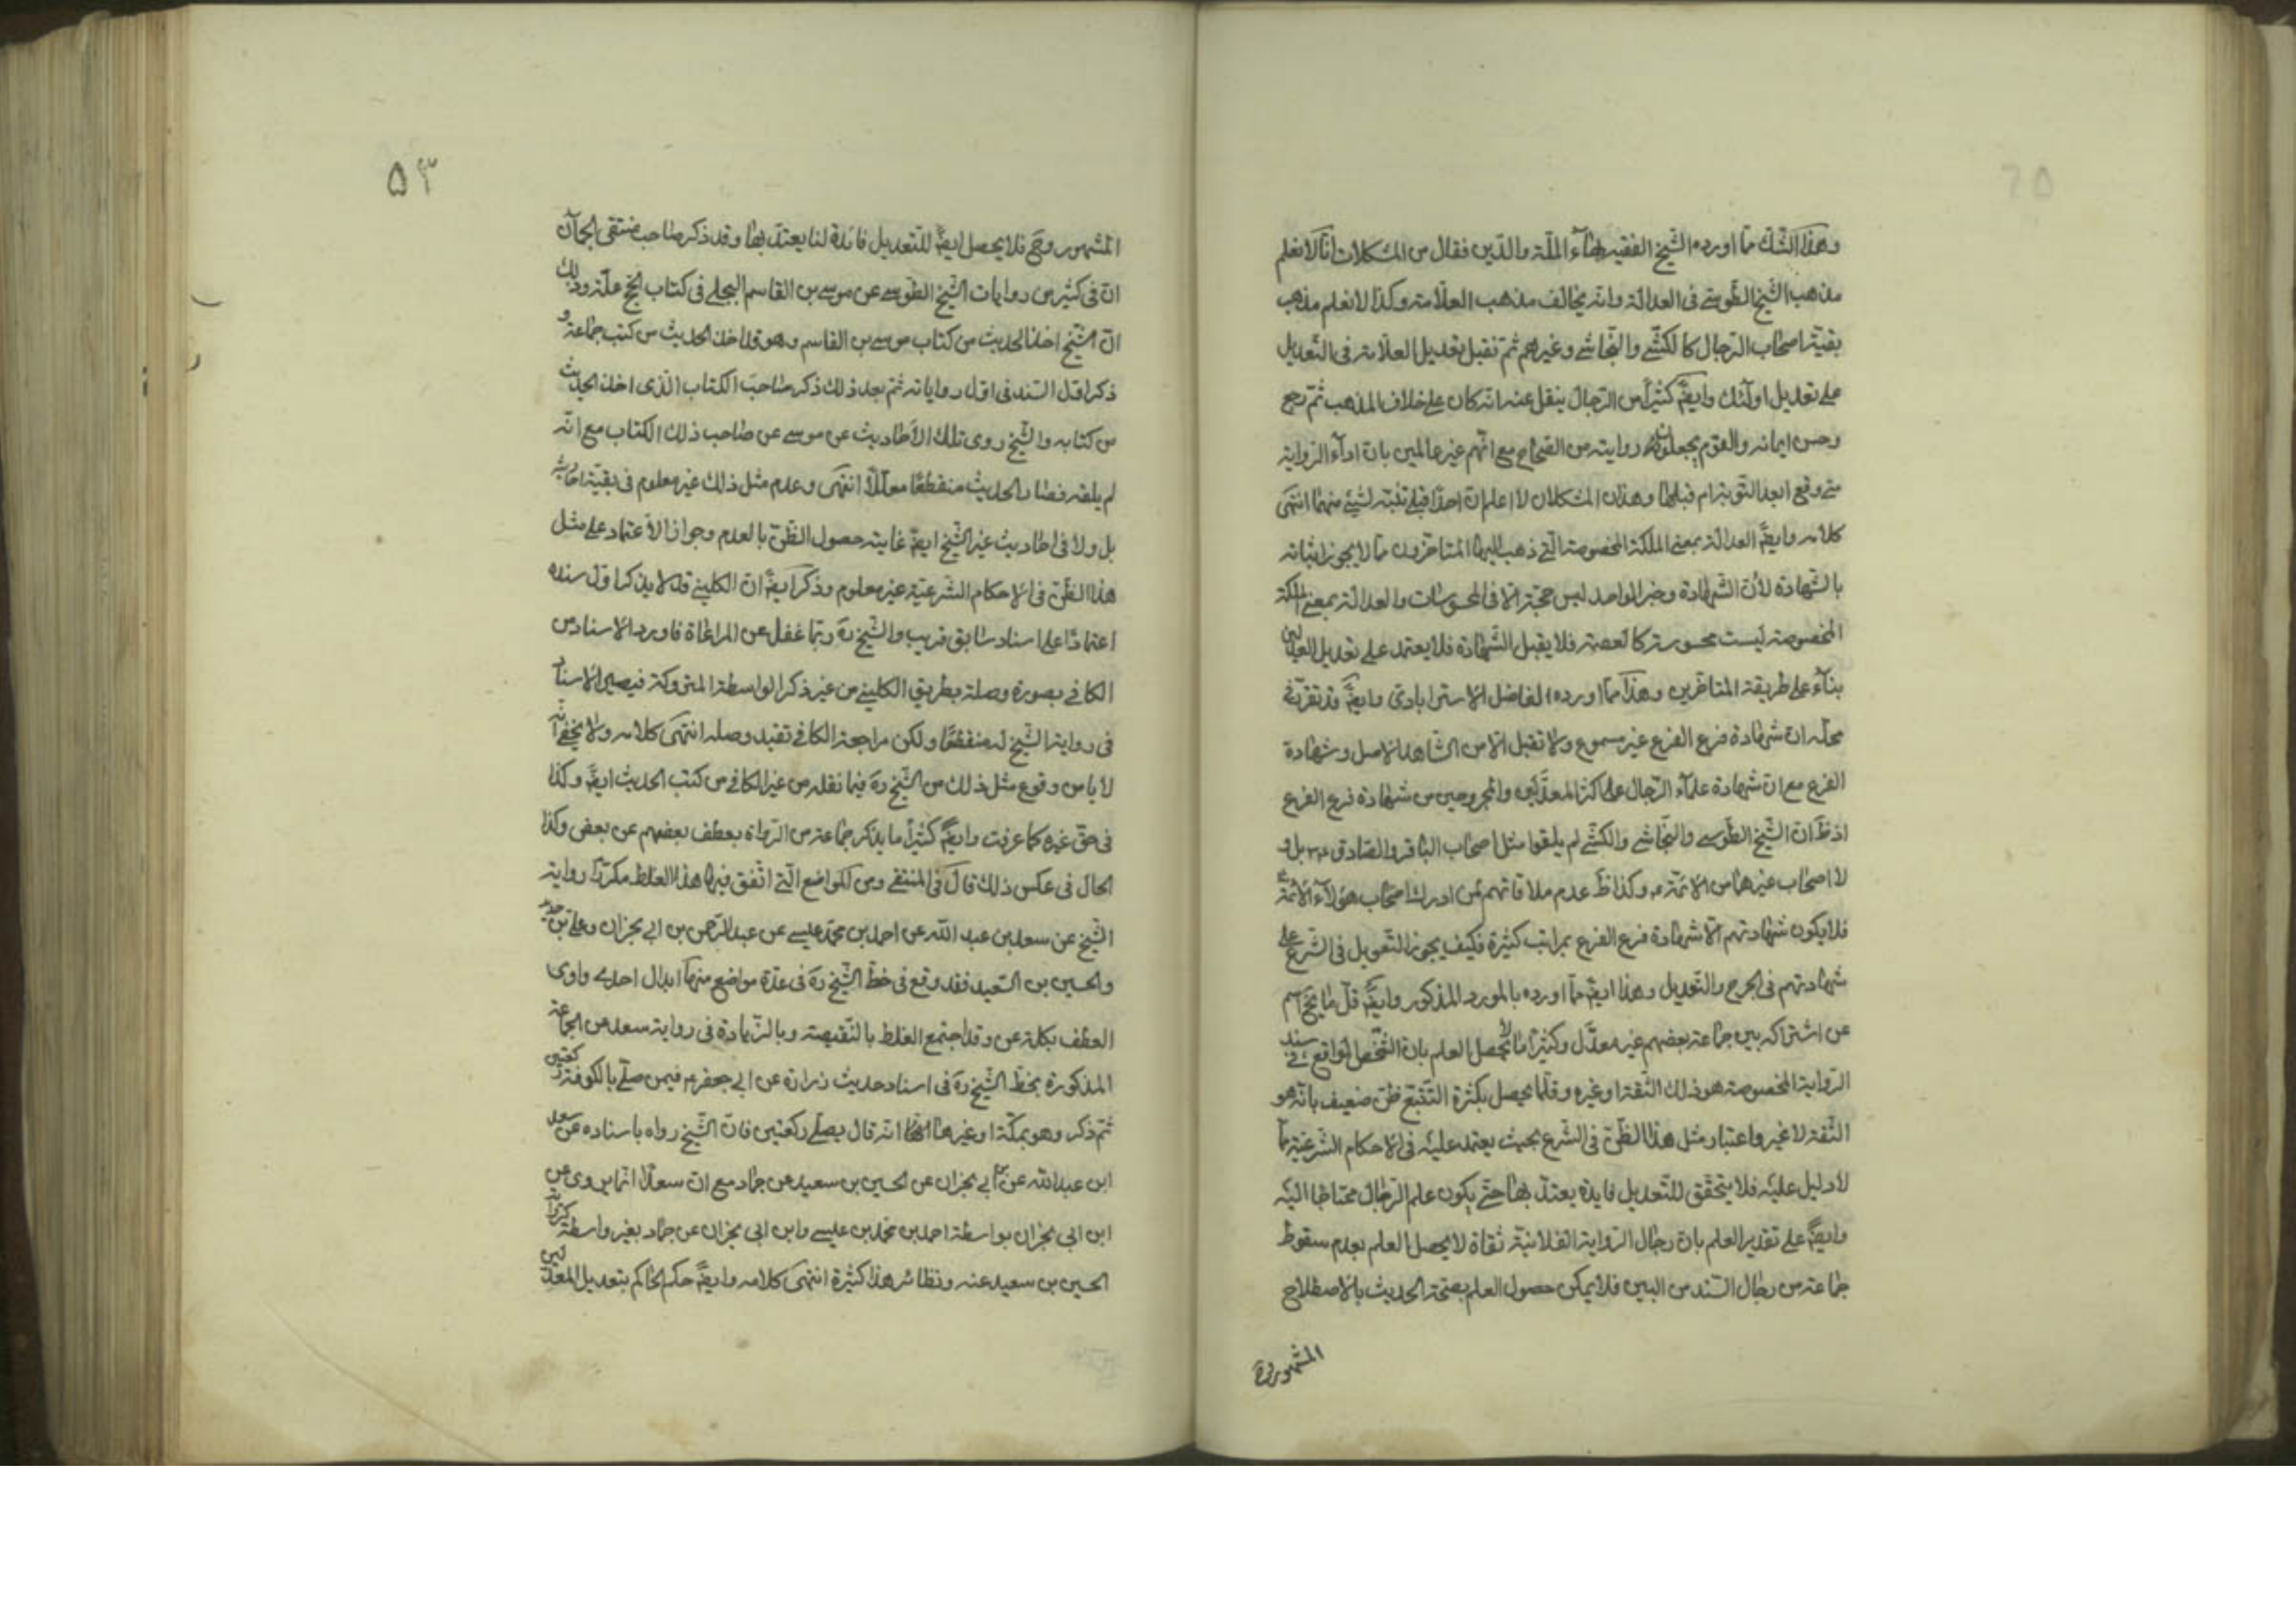 وهذا الشك مما اورده الشيخ الفقيه بهاء الملة والدين فقال من المشكلات انا لا نعلم
مذهب الشيخ الطوسي في العدالة وانه يخالف مذهب العلامة وكذا لا نعلم مذهب
بقية اصحاب الرجال كالكشي والنجاشي وغيرهم ثم نقبل تعديل العلامة في التعديل
على تعديل اولئك وايضً كثيراً من الرجال ينقل عنه انه كان على خلاف المذهب ثم رجع
وحسن ايمانه والقوم يجعلون روايته من الصحاح مع انهم غير عالمين بان اداء الرواية
متى وقع ابعد التوبة ام قبلها وهذان المشكلان لا اعلم ان احدا قبلي تنبه لشيء منهما انتهى
كلامه وايضً العدالة بمعنى الملكة المخصوصة التي ذهب اليها المتاخرون مما لا يجوز اثباته
بالشهادة لأن الشهادة وخبر الواحد ليس حجة الا في المحسوسات والعدالة بمعنى الملكة
المخصوصة ليست محسوسة كالعصمة فلا يقبل الشهادة فلا يعتمد على تعديل المعدلين
بناء على طريقة المتاخرين وهذا مما اورده الفاضل الاسترابادي وايضً قد تقرر في
محله ان شهادة فرع الفرع غير مسموع ولا تقبل الا من الشاهد الاصل وشهادة
الفرع مع ان شهادة علماء الرجال على اكثر المعدلين والمجروحين من شهادة فرع الفرع
اذ ظ ان الشيخ الطوسي والنجاشي والكشي لم يلقوا مثل اصحاب الباقر والصادق ع بل و
لا اصحاب غيرهما من الائمة ع وكذا ظ عدم ملاقاتهم لمن ادرك اصحاب هؤلاء الائمة ع
فلا يكون شهادتهم الا شهادة فرع الفرع بمراتب كثيرة فكيف يجوز التعويل في الشرع على
شهادتهم في الجرح والتعديل وهذا ايضً مما اورده بالمورد المذكور وايضً قل ما يخ اسم
عن اشتراكه بين جماعة بعضهم غير معدل وكثيرا ما لا يحصل العلم بان الشخص الواقع في سند
الرواية المخصوصة هو ذلك الثقة او غيره وقلما يحصل بكثرة التتبع ظن ضعيف بانه هو
الثقة لا غير واعتبار مثل هذا الظن في الشرع بحيث يعتمد عليه في الاحكام الشرعية مما
لا دليل عليه فلا يتحقق للتعديل فايدة يعتد بها حتى يكون علم الرجال محتاجا اليه
وايضً على تقدير العلم بان رجال الرواية الفلانية ثقاة لا يحصل العلم بعدم سقوط
جماعة من رجال السند من البين فلا يمكن حصول العلم بصحة الحديث بالاصطلاح
المشهور وح
۵۳
المشهور وح فلا يحصل ايضً للتعديل فائدة لنا يعتد بها وقد ذكر صاحب منتقى الجمان
ان في كثير من روايات الشيخ الطوسي عن موسى بن القاسم البجلي في كتاب الحج علة وذلك
ان الشيخ اخذ الحديث من كتاب موسى بن القاسم وهو قد اخذ الحديث من كتب جماعة و
ذكر اول السند في اول رواياته ثم بعد ذلك ذكر صاحب الكتاب الذي اخذ الحديث
من كتابه والشيخ روى تلك الاحاديث عن موسى عن صاحب ذلك الكتاب مع انه
لم يلقه فصار الحديث منقطعا معللاً انتهى وعدم مثل ذلك غير معلوم في بقية احاديثه
بل ولا في احاديث غير الشيخ ايضً غايته حصول الظن بالعدم وجواز الاعتماد على مثل
هذا الظن في الاحكام الشرعية غير معلوم وذكر ايضً ان الكليني قد لا يذكر اول سنده
اعتمادا على اسناد سابق قريب والشيخ ره ربما غفل عن المراعاة فاورد الاسناد من
الكافي بصورة وصله بطريق الكليني من غير ذكر الواسطة المتروكة فيصير الاسناد
في رواية الشيخ له منقطعا ولكن مراجعة الكافي تفيد وصله انتهى كلامه ولا يخفى انه
لا ياس وقوع مثل ذلك من الشيخ ره فيما نقله من غير الكافي من كتب الحديث ايضً وكذا
في حق غيره كما عرفت وايضً كثيراً ما يذكر جماعة من الرواة بعطف بعضهم عن بعض وكذا
الحال في عكس ذلك قال في المنتقى ومن المواضع التي اتفق فيها هذا الغلط مكررا رواية
الشيخ عن سعد بن عبد الله عن احمد بن محمد عيسى عن عبد الرحمن بن ابي نجران وعلي بن حديد
والحسين بن السعيد فقد وقع في خط الشيخ ره في عدة مواضع منها ابدال احدى واوى
العطف بكلمة عن وقد اجتمع الغلط بالنقيصة وبالزيادة في رواية سعد عن الجماعة
المذكورة بخط الشيخ ره في اسناد حديث زرارة عن ابي جعفر ع فيمن صلى بالكوفة ركعتين
ثم ذكر وهو بمكة او غيرها انه قال يصلي ركعتين فان الشيخ رواه باسناده عن سعد
ابن عبد الله عن ابي نجران عن الحسين بن سعيد عن حماد مع ان سعدا انما يروي عن
ابن ابي نجران بواسطة احمد بن محمد بن عيسى وابن ابي نجران عن حماد بغير واسطة كرواية
الحسين بن سعيد عنه ونظائر هذا كثيرة انتهى كلامه وايضً حكم الحاكم بتعديل المعدلين